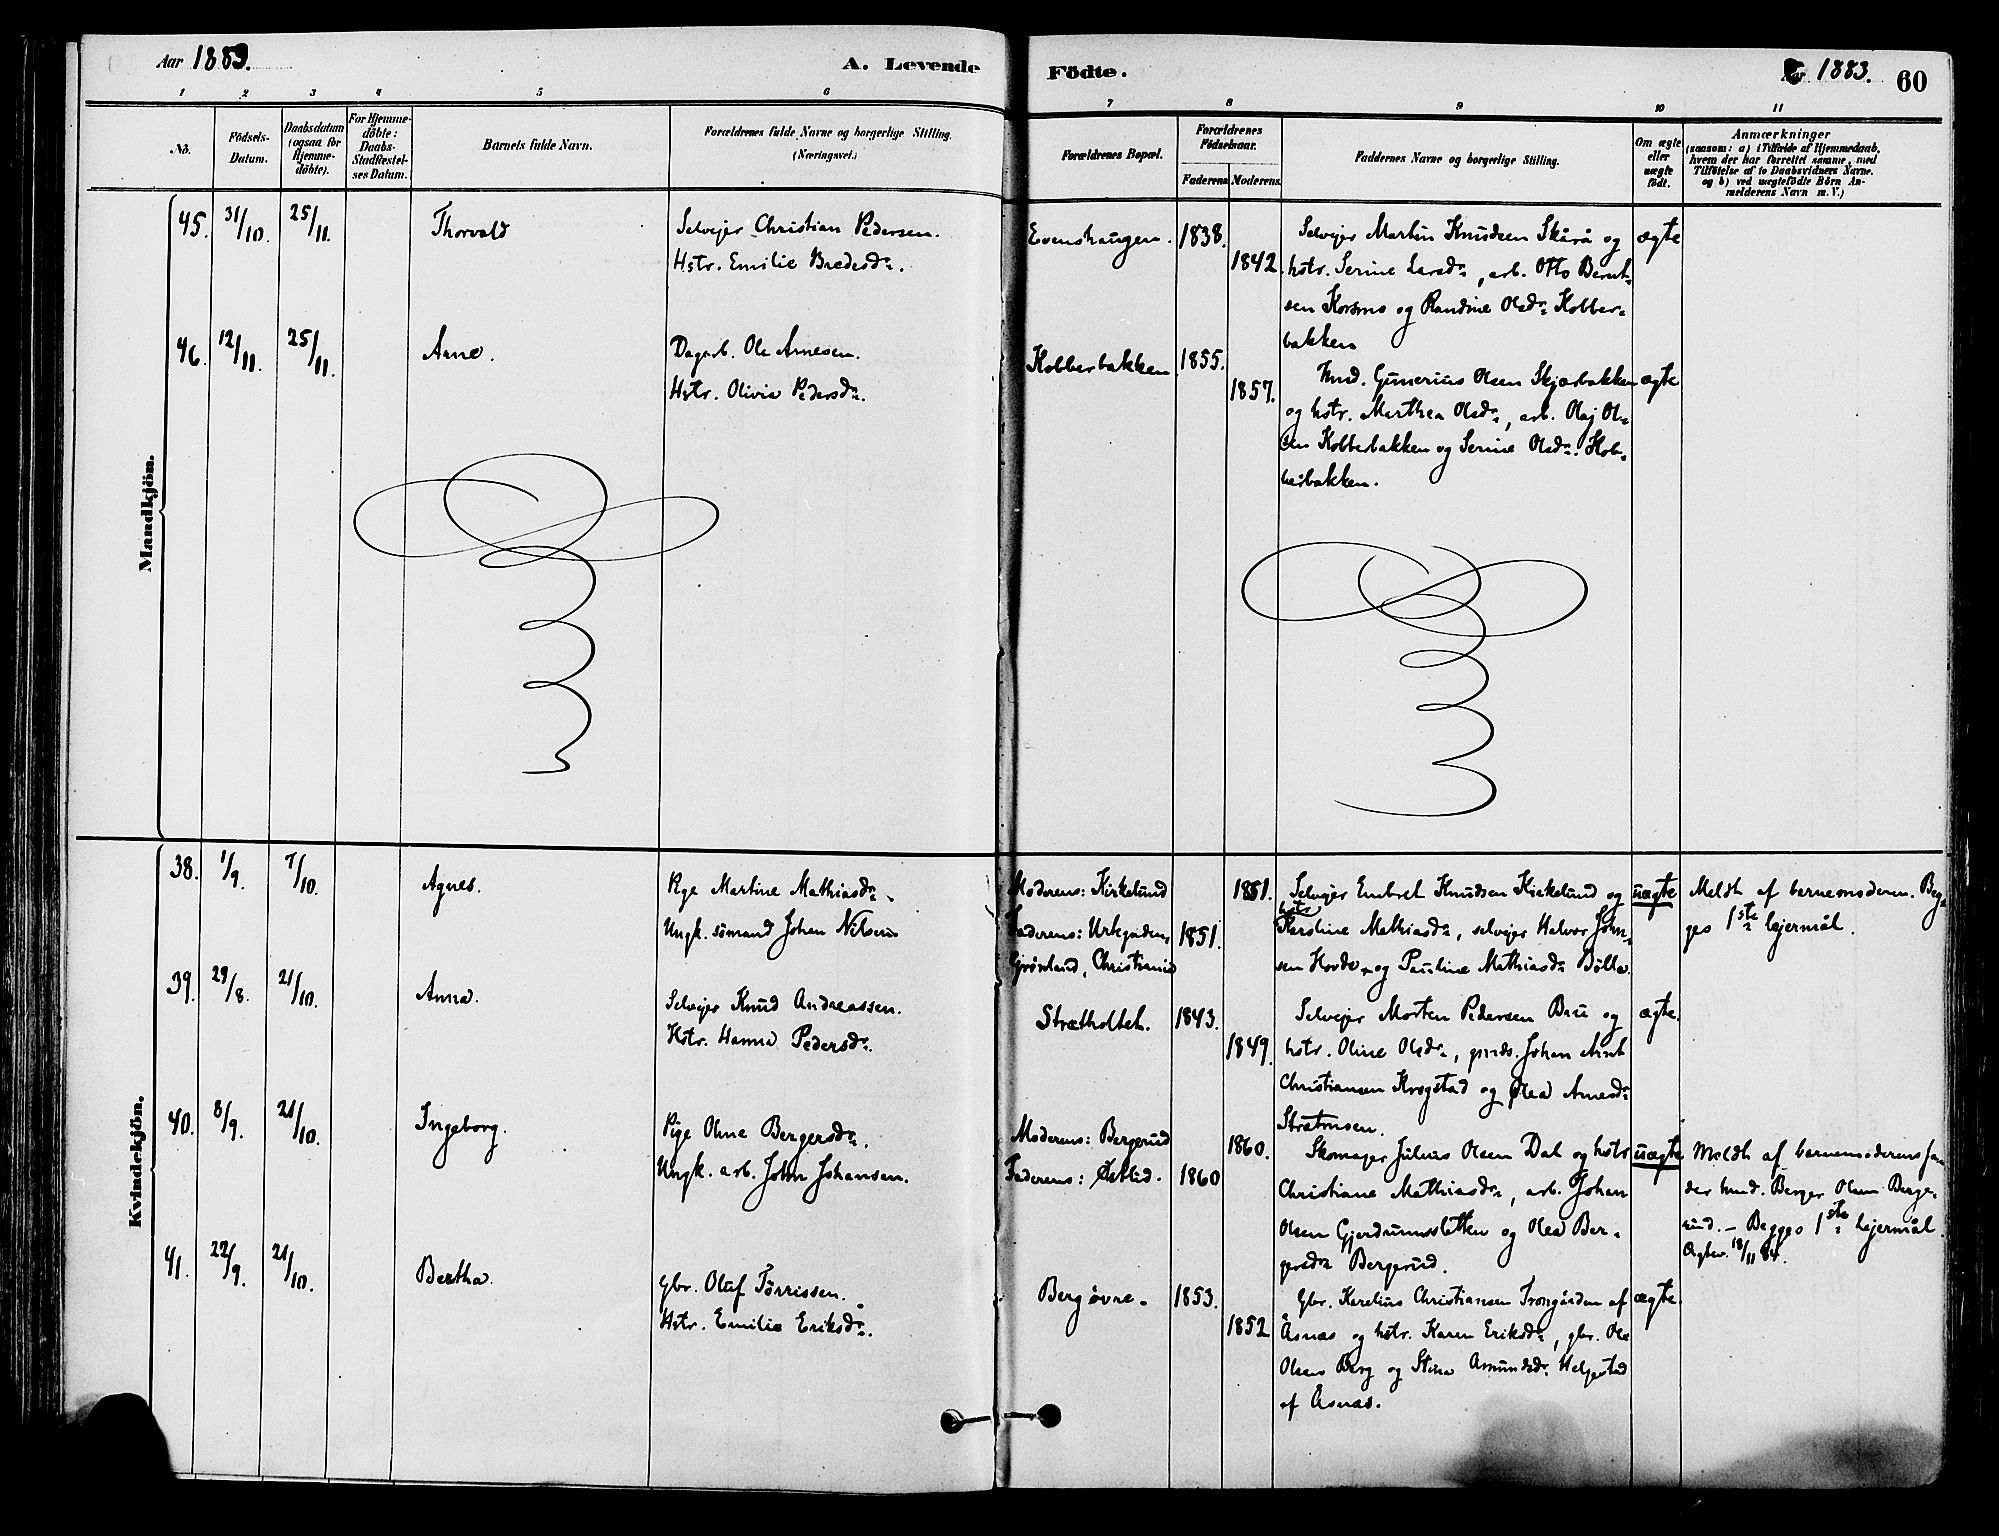 Aar 1883.
A. Levende
Födte.
1883.
60
1 2 3 4 5 6
7 8 9 10 11
No.
Födsels-Datum.
Daabsdatum (ogsaa för Hjemme-döbte).
For Hjemme-döbte: Daabs-Stadfæstel-ses Datum.
Barnets fulde Navn.
Forældrenes fulde Navne og borgerlige Stilling.
(Næringsvei.)
Forældrenes Bopæl.
Forældrenes Födselsaar.
Faderens Moderens
Faddernes Navne og borgerlige Stilling.
Om ægte eller uægte födt.
Anmærkninger
(saasom: a) i Tilfælde af Hjemmedaab,
hvem der har forrettet samme, med
Tilföielse af to Daabsvidners Navne.
og b) ved uægtefödte Börn An-
melderens Navn m. V.)
Mandkjön.
45. 31/10. 25/11. Thorvald
Selvejer Christian Pedersen.
Hstr. Emilie Bredesdr.
Evenshaugen. 1838.
1842.
Selvejer Martin Knudsen Skårå og
hstr. Serine Larsdr, arb. Otto Bernt-
sen Korsmo og Randine Olsdr Kobber-
bakken
ægte
46. 12/11. 25/11. Arne.
Dagarb. Ole Arnesen.
Hstr. Olivia Pedersdr.
Kobberbakken 1855.
1857.
Hmd. Gunerius Olsen Skjærbakken
og hstr. Marthea Olsdr, arb. Olaj Ol-
sen Kobberbakken og Serine Olsdr. Kob-
berbakken.
ægte
Kvindekjön.
38. 1/9. 7/10. Agnes.
Pge Martine Mathiasdr.
Ungk. sømand Johan Nilsen
Moderens: Kirkelund
Faderens:
Grønland, Christiania
1851.
1851.
Selvejer Embret Knudsen Kirkelund og
hstr
Karoline Mathiasdr, selvejer Halvor John-
sen Hovde og Pauline Mathiasdr Bølla.
uægte
Meldt af barnemoderen. Beg-
ges 1ste lejermål.
39. 29/8. 21/10. Anna.
Selvejer Knud Andreassen.
Hstr. Hanna Pedersdr.
Strætholtet. 1843.
1849.
Selvejer Morten Pedersen Bru og
hstr. Oline Olsdr, Johan Arnt
Christiansen Krogstad og Olea Arnesdr
ægte.
40. 8/9. 21/10. Ingeborg.
Pige Oline Bergersdr.
Ungk. arb. John Johansen.
Moderens: Bergerud
Faderens: Østlid.
1860.
1860
Skomager Julius Olsen Dal og hstr
Christiane Mathiasdr, arb. Johan
Olsen Gjerdrumssletten og Olea Ber-
gersdr Bergerud.
uægte
Meldt af barnemoderens fa-
der hmd. Berger Olsen Berge-
rud. – Begges 1ste lejermål.
Ægtev. 18/11 84.
41. 22/9. 21/10. Bertha.
Gbr. Oluf Tørrissen.
Hstr. Emilie Eriksdr.
Berg øvre. 1853.
1852
Gbr. Karelius Christiansen Trongården af
Åsnas og hstr. Karen Eriksdr, gbr. Ole
Olsen Berg og Stina Amundsdr. Helgestad
af Åsnas.
ægte